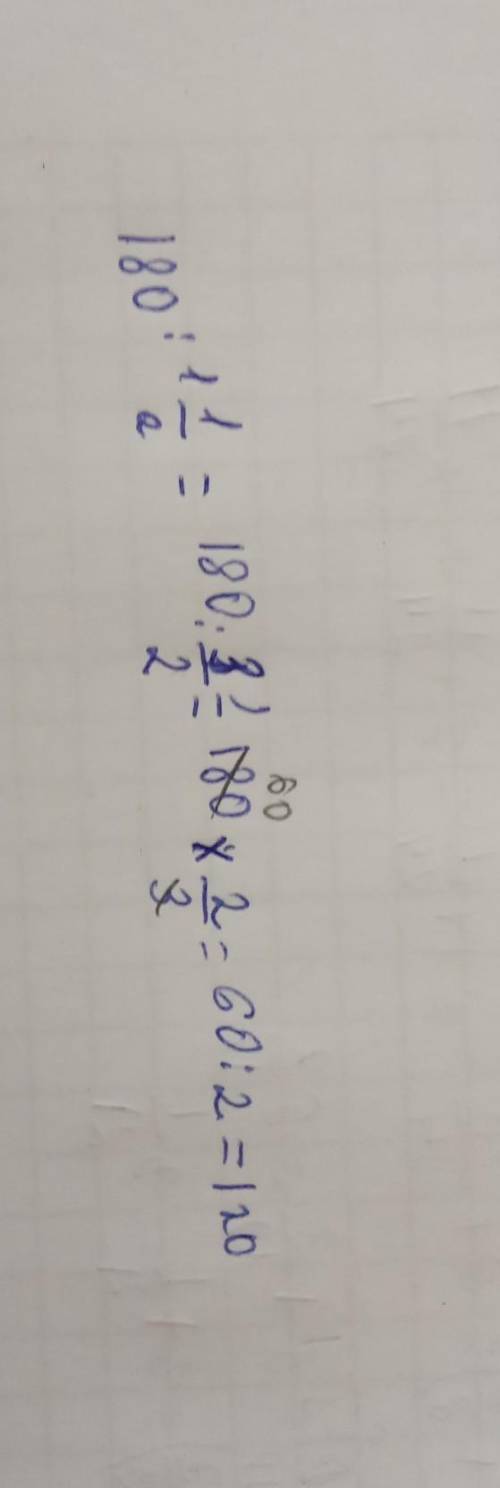 180 : 1 1/2 = 180 : 3/2 = 180 60 × 2/3 = 60 : 2 = 120